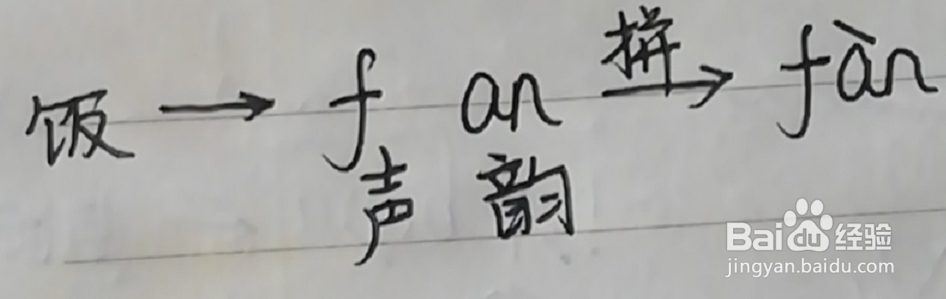 饭 → f an 拼 → fàn
声 韵
Baidu 经验
jingyan.baidu.com